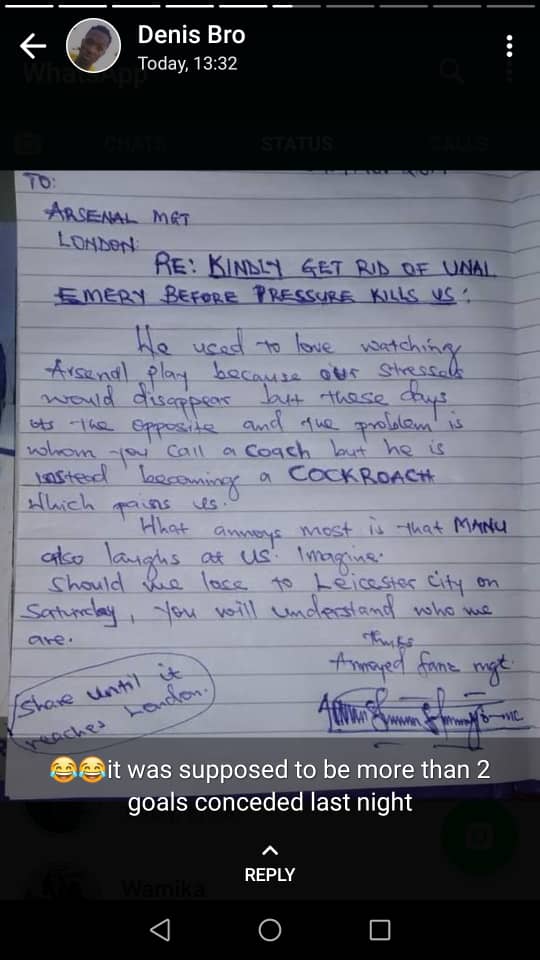 Denis Bro
Today, 13:32
WhatsApp
CHATS STATUS CALLS
TO:
ARSENAL MGT
LONDON:
RE: KINDLY GET RID OF UNAI
EMERY BEFORE PRESSURE KILLS US:
We used to love watching
Arsenal play because our stresses
would disappear but these days
its the opposite and the problem is
whom you call a coach but he is
instead becoming a COCKROACH
which pains us.
What annoys most is that MANU
also laughs at us. Imagine.
Should we lose to Leicester City on
Saturday, you will understand who we
are.
Thnks
Annoyed fans mgt.
Share until it
reaches London.
😂😂it was supposed to be more than 2
goals conceded last night
REPLY
Wamika